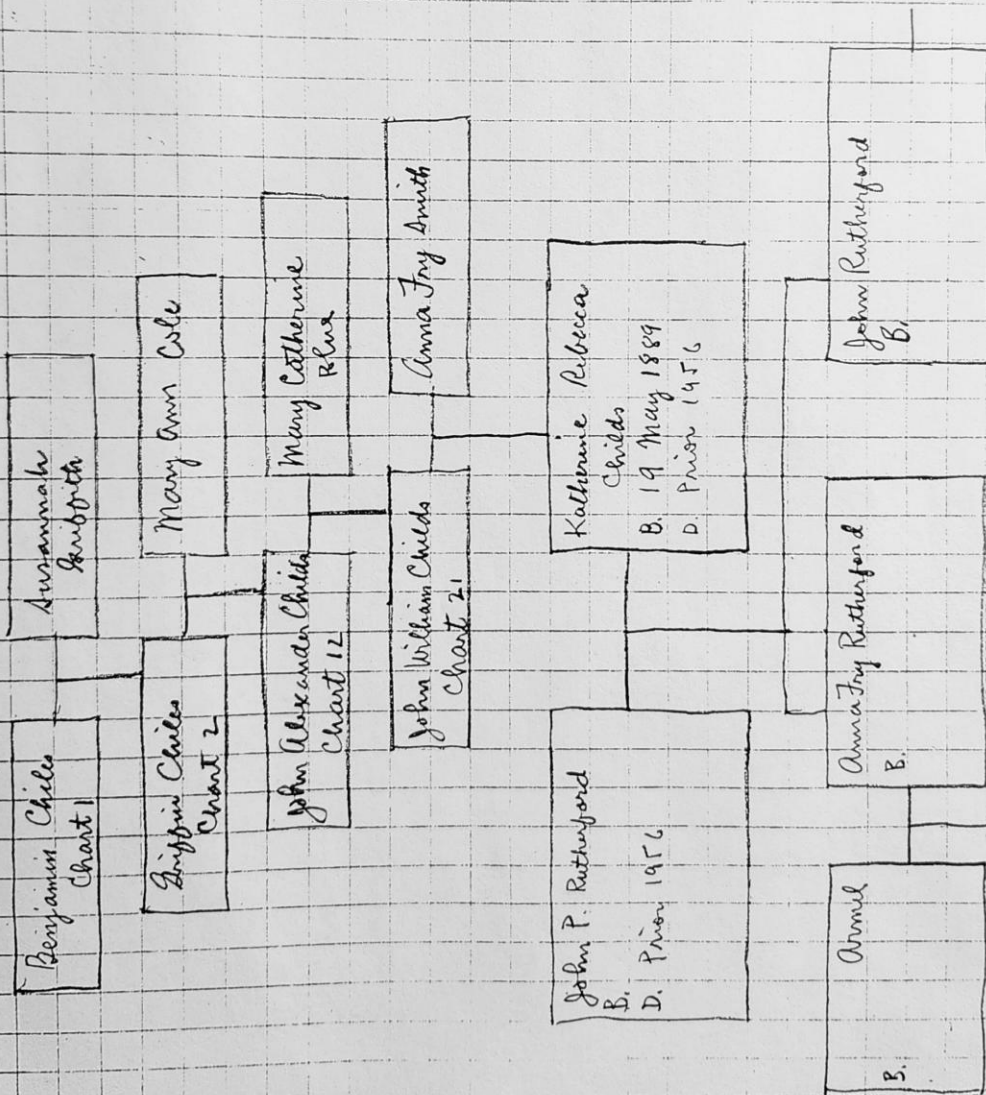 Benjamin Chiles
Chart 1
Susannah
Griffith
Griffin Chiles
Chart 2
Mary Ann Cole
John Alexander Childs
Chart 12
Mary Catherine
Blue
John William Childs
Chart 21
Anna Fry Smith
John P. Rutherford
B.
D. Prior 1956
Katherine Rebecca
Childs
B. 19 May 1889
D. Prior 1956
Armel
B.
Anna Fry Rutherford
B.
John Rutherford
B.